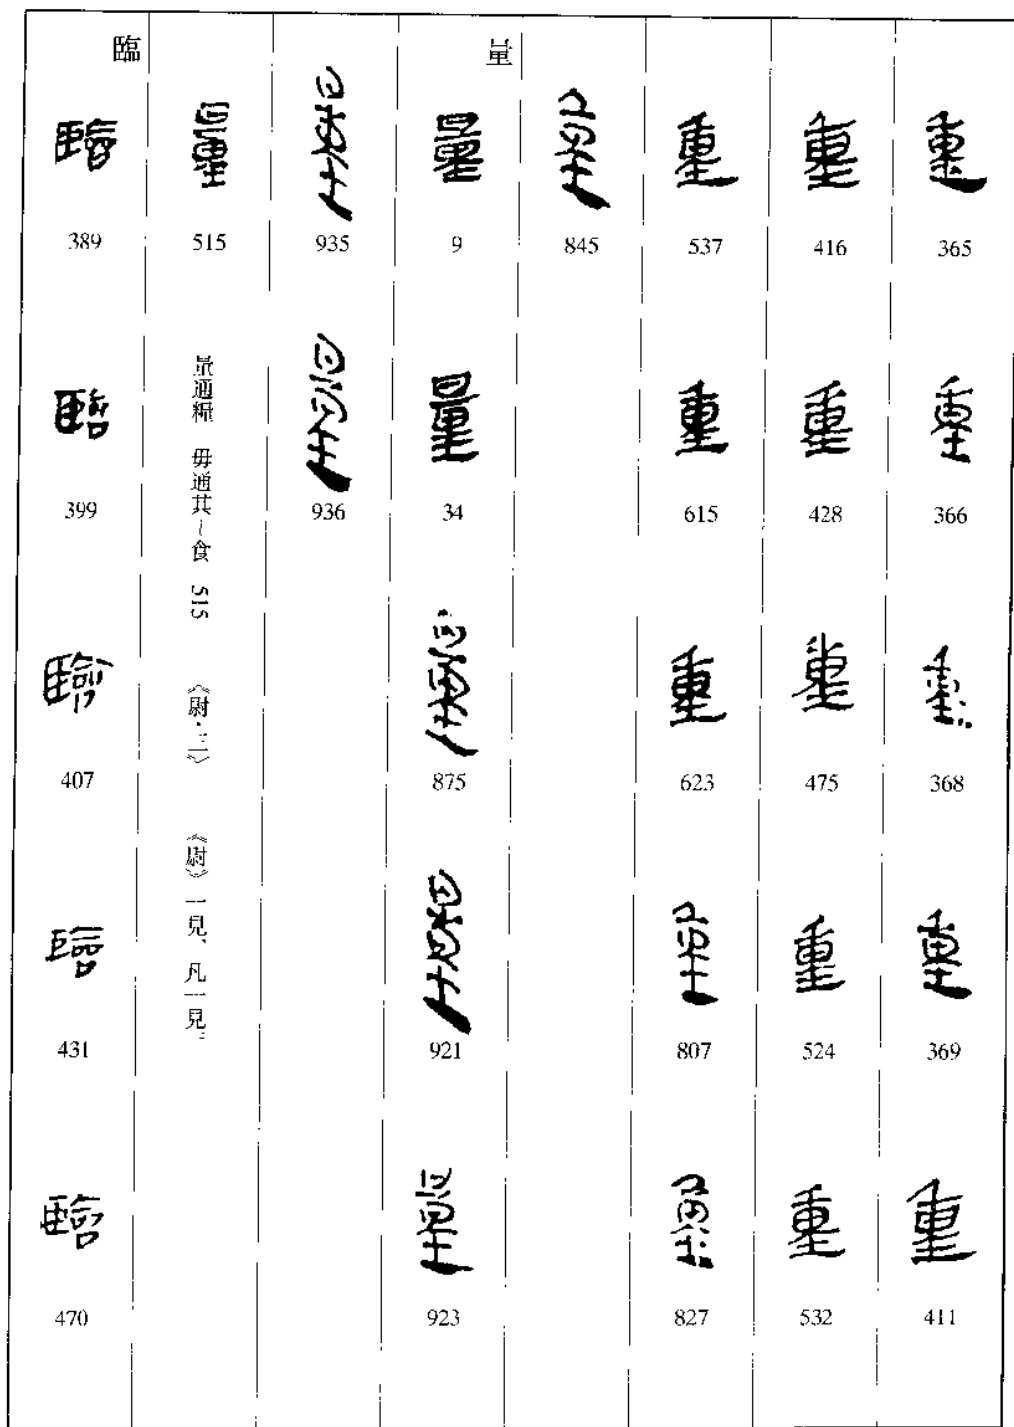 重 365
重 366
重 368
重 369
重 411
重 416
重 428
重 475
重 524
重 532
重 537
重 615
重 623
重 807
重 827
重 845
量
量 9
量 34
量 875
量 921
量 923
量 935
量 936
量 515
量通糧 毋通其~食 515 《尉·三》 《尉》一見、凡一見。
臨
臨 389
臨 399
臨 407
臨 431
臨 470